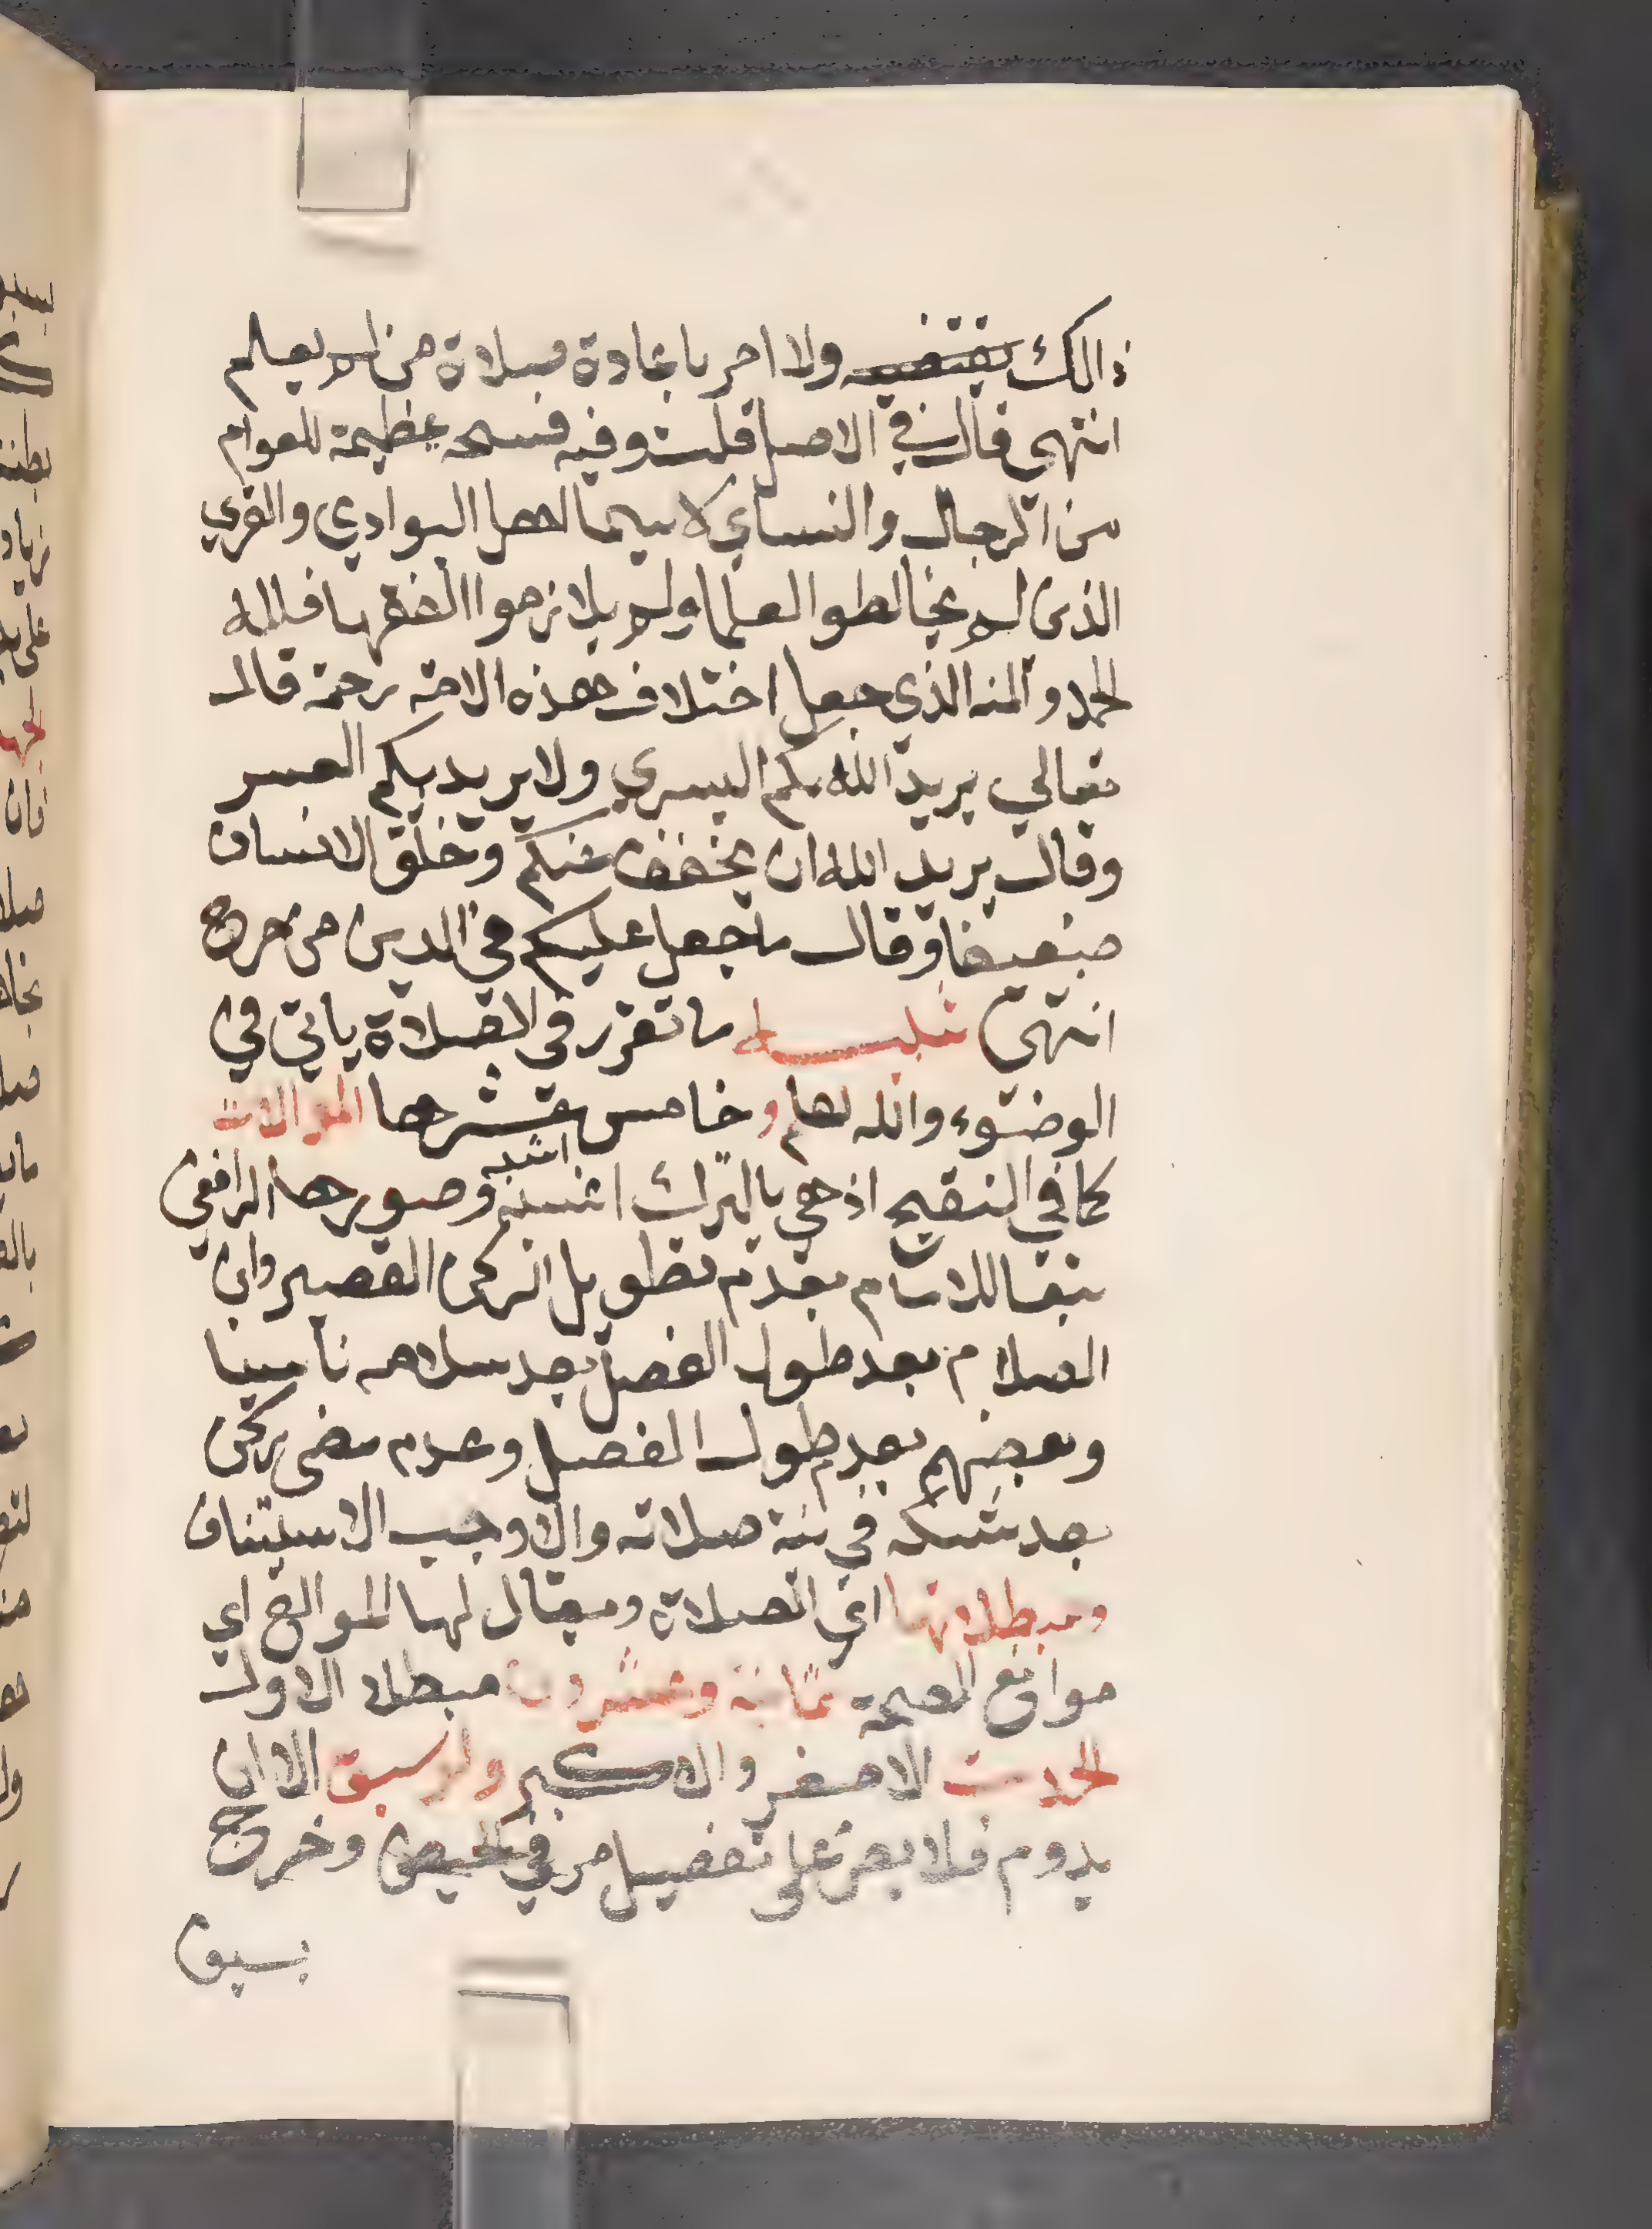 ذالك يقتضيه ولا امر باعادة صلاة من لم يعلم
انتهى قال في الاصل قلت وفيه فسحه عظيمة للعوام
من الرجال والنساي لا سيما اهل البوادي والقري
الذين لم يخالطوا العلما ولم يلازموا الفقها فلله
الحمد والمنه الذي جعل اختلاف هذه الامه رحمة قال
تعالي يريد الله بكم اليسري ولا يريد بكم العسر
وقال يريد الله ان يخفف عنكم وخلق الانسان
ضعيفا وقال ما جعل عليكم في الدين من حرج
انتهى ما تقرر في الصلاة ياتي في
الوضوء والله اعلم و خامس عشرها الموالات
كما في التنقيح اذ هي بالترك اشبه وصورها الرافعي
تبعا للامام بعدم تطويل الركن القصير وابن
الصلاح بعدم طول الفصل بعد سلامه ناسيا
وبعضهم بعدم طول الفصل وعدم مضى ركن
بعد شكه في نية صلاته والا وجب الاستيناف
ومبطلاتها اي الصلاة ويقال لها الموانع اي
موانع الصحة ثمانية وعشرون مبطلا الاول
الحدث الاصغر والاكبر ولو سبق الا ان
يدوم فلا يضر على تفصيل مر في الحيض وخرج
بسبق